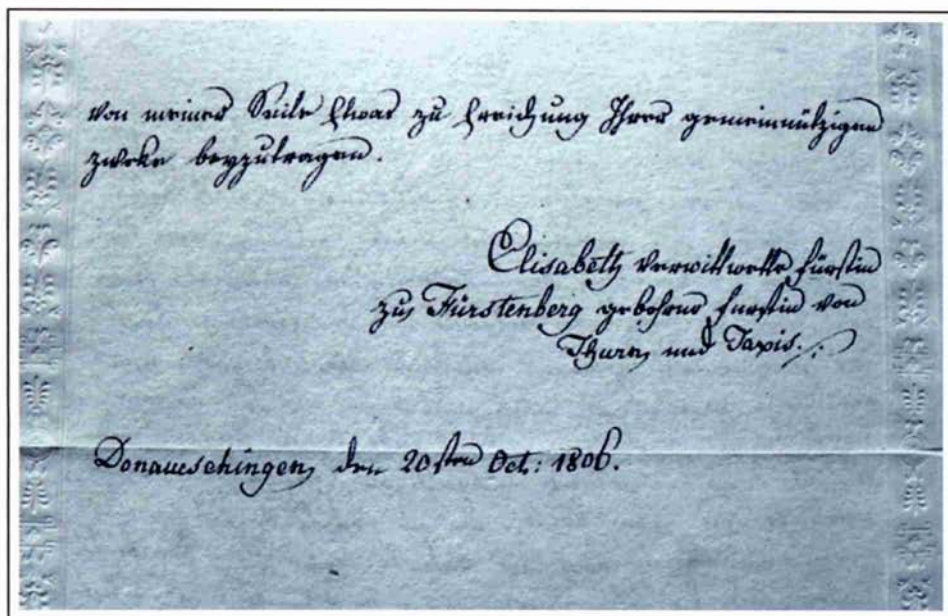 von meiner Seite Etwas zu Erreichung Ihrer gemeinnützigen
zweke beyzutragen.
Elisabeth verwittwette Fürstin
zu Fürstenberg gebohrne Fürstin von
Thurn und Taxis./.
Donaueschingen den 20sten Oct: 1806.